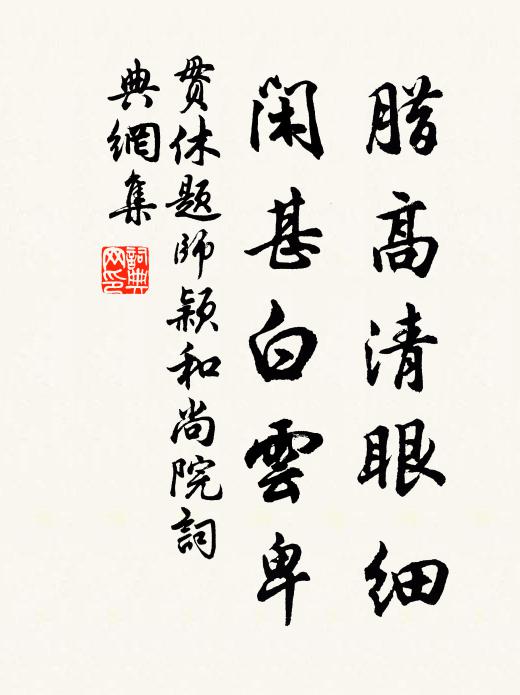 腊高清眼细
闲甚白雲卑
贯休题師颖和尚院詞
典網集
詞典网印